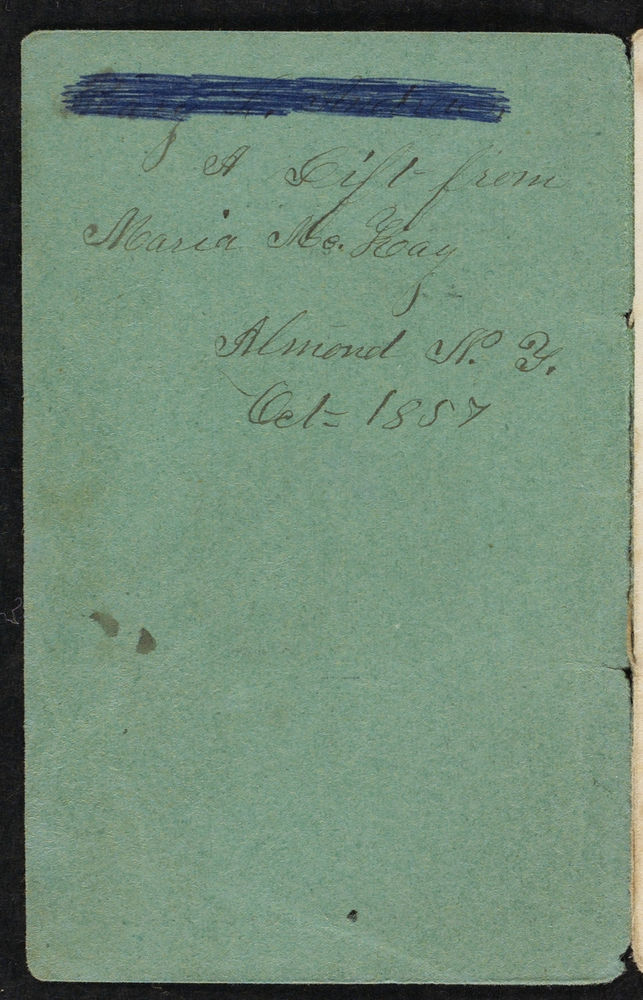 A Gift from
Maria Mc. Kay
Almond N. Y.
Oct- 1857